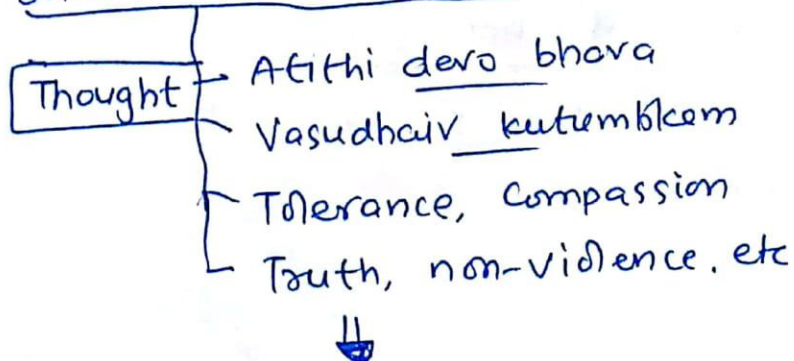 Thought
Atithi devo bhava
Vasudhaiv kutumbkam
Tolerance, Compassion
Truth, non-violence. etc